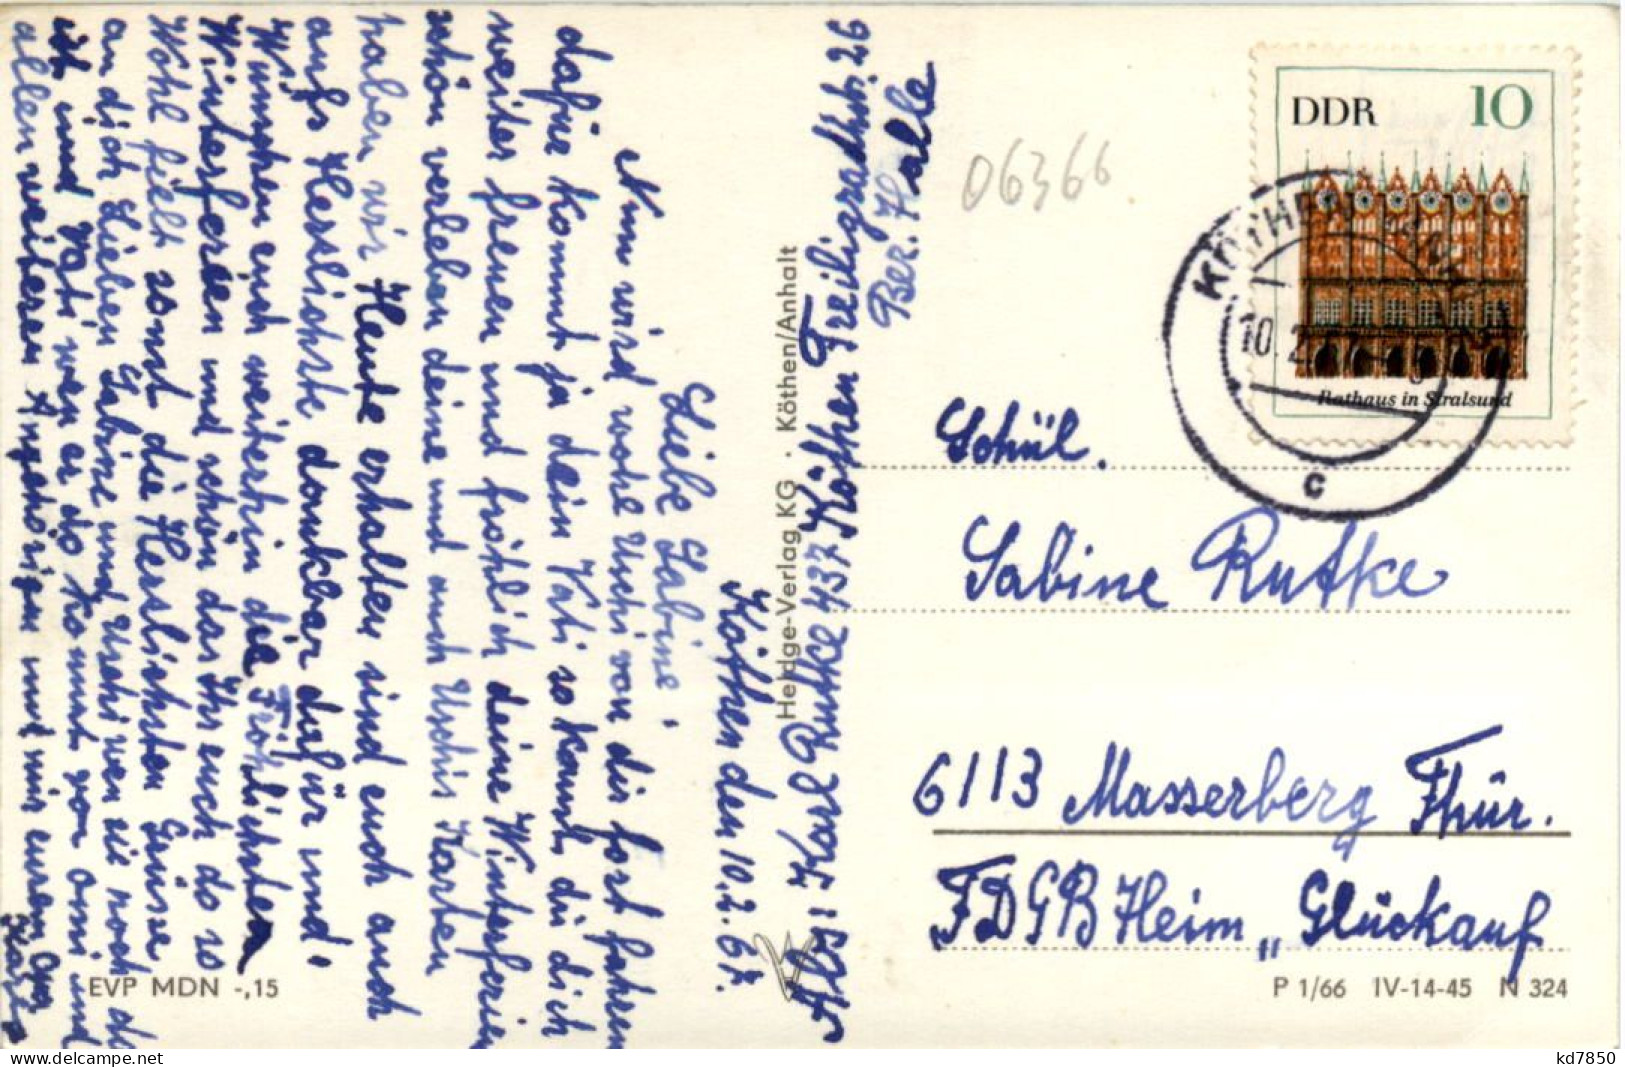 Köthen den 10.2.67.
Liebe Sabine!
Nun wird wohl Uschi von dir fort fahren
dafür kommt ja dein Vati so kannst du dich
weiter freuen und fröhlich deine Winterferien
schön verleben deine und auch Uschis Karten
haben wir Heute erhalten sind euch auch
aufs Herzlichste dankbar dafür und
Wünschen euch weiterhin die Fröhlichsten
Winterferien und schön das Ihr euch do so
Wohl fielt sonst die Herzlichsten Grüsse
an dich Lieben Sabine und Uschi wen sie noch da
ist und Vati wen er do kommt von omi und
allen weiteren Angehörigen und mir euren Opa
Karl
Abs: Karl Rutke 437 Köthen Freiligradthstr. 26
Bez. Halle
Heldge-Verlag KG · Köthen/Anhalt
EVP MDN -,15
06366
DDR 10
Rathaus in Stralsund
KÖTHEN (ANH)
10.2.67
c
Schül.
Sabine Rutke
6113 Masserberg Thür.
FDGB Heim „Glückauf
P 1/66 IV-14-45 N 324
www.delcampe.net
kd7850